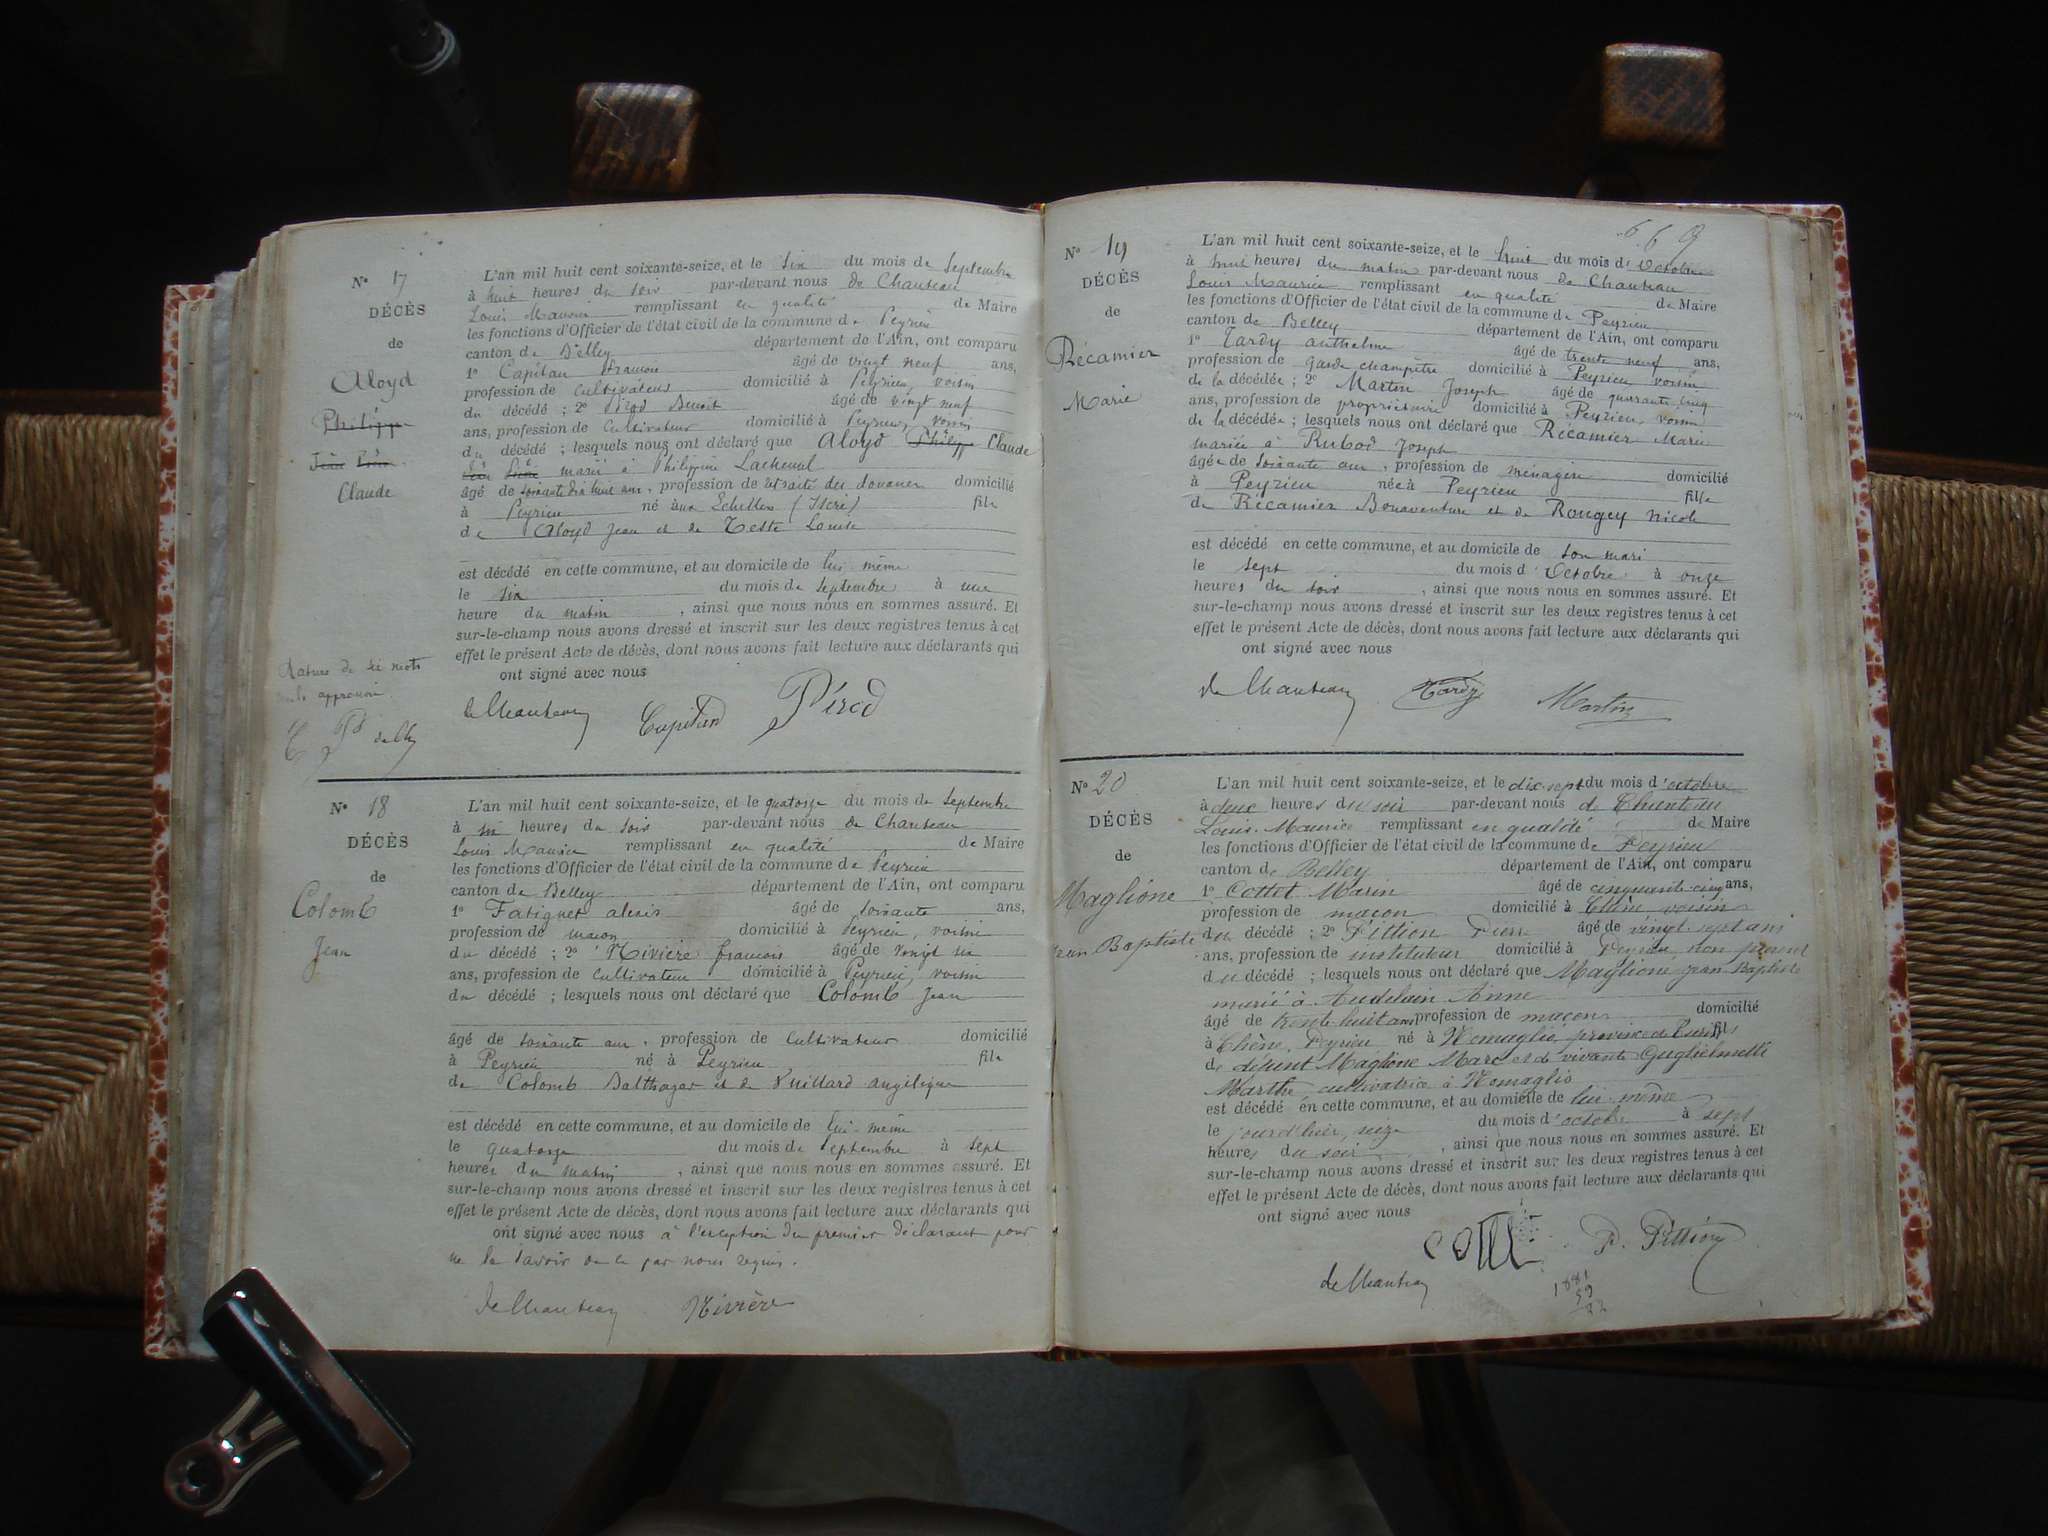 N° 17
DÉCÈS
de
Aloyd
Philippe
Jean
Claude
L'an mil huit cent soixante-seize, et le six du mois de Septembre
à huit heures du soir par-devant nous de Chanteau
Louis Maurice remplissant en qualité de Maire
les fonctions d'Officier de l'état civil de la commune de Peyrieu
canton de Belley département de l'Ain, ont comparu
1° Capitan françois âgé de vingt neuf ans,
profession de Cultivateur domicilié à Peyrieu, voisin
du décédé ; 2° Pérod Benoit âgé de vingt neuf
ans, profession de Cultivateur domicilié à Peyrieu, voisin
du décédé ; lesquels nous ont déclaré que Aloyd Philipp Claude
marié à Philippine
âgé de soixante dix huit ans, profession de retraité des douanes domicilié
à Peyrieu né aux Echelles (Isère) fils
de Aloyd Jean et de Teste Louise
est décédé en cette commune, et au domicile de lui même
le six du mois de septembre à une
heure du matin, ainsi que nous nous en sommes assuré. Et
sur-le-champ nous avons dressé et inscrit sur les deux registres tenus à cet
effet le présent Acte de décès, dont nous avons fait lecture aux déclarants qui
ont signé avec nous
Rature de six mots
approuvée
de Chanteau Capitan Pérod
N° 18
DÉCÈS
de
Colomb
Jean
L'an mil huit cent soixante-seize, et le quatorze du mois de Septembre
à six heures du soir par-devant nous de Chanteau
Louis Maurice remplissant en qualité de Maire
les fonctions d'Officier de l'état civil de la commune de Peyrieu
canton de Belley département de l'Ain, ont comparu
1° Fatiguet alexis âgé de soixante ans,
profession de maçon domicilié à Peyrieu, voisin
du décédé ; 2° Rivière françois âgé de vingt six
ans, profession de Cultivateur domicilié à Peyrieu, voisin
du décédé ; lesquels nous ont déclaré que Colomb Jean
âgé de soixante ans, profession de Cultivateur domicilié
à Peyrieu né à Peyrieu fils
de Colomb Balthazar et de Vuillard angélique
est décédé en cette commune, et au domicile de lui-même
le quatorze du mois de Septembre à sept
heures du matin, ainsi que nous nous en sommes assuré. Et
sur-le-champ nous avons dressé et inscrit sur les deux registres tenus à cet
effet le présent Acte de décès, dont nous avons fait lecture aux déclarants qui
ont signé avec nous à l'exception du premier déclarant pour
ne le savoir de ce par nous requis.
de Chanteau Rivière
669
N° 19
DÉCÈS
de
Récamier
Marie
L'an mil huit cent soixante-seize, et le huit du mois d'Octobre
à huit heures du matin par-devant nous de Chanteau
Louis Maurice remplissant en qualité de Maire
les fonctions d'Officier de l'état civil de la commune de Peyrieu
canton de Belley département de l'Ain, ont comparu
1° Tardy anthelme âgé de trente neuf ans,
profession de garde champêtre domicilié à Peyrieu voisin
de la décédée ; 2° Martin Joseph âgé de quarante cinq
ans, profession de propriétaire domicilié à Peyrieu, voisin
de la décédée ; lesquels nous ont déclaré que Récamier Marie
mariée à Rubod Joseph
âgée de soixante ans, profession de ménagère domicilié
à Peyrieu née à Peyrieu fille
de Récamier Bonaventure et de Rougey Nicole
est décédé en cette commune, et au domicile de son mari
le sept du mois d'Octobre à onze
heures du soir, ainsi que nous nous en sommes assuré. Et
sur-le-champ nous avons dressé et inscrit sur les deux registres tenus à cet
effet le présent Acte de décès, dont nous avons fait lecture aux déclarants qui
ont signé avec nous
de Chanteau Tardy Martin
N° 20
DÉCÈS
de
Maglione
Jean Baptiste
L'an mil huit cent soixante-seize, et le dix-sept du mois d'octobre
à deux heures du soir par-devant nous de Chanteau
Louis-Maurice remplissant en qualité de Maire
les fonctions d'Officier de l'état civil de la commune de Peyrieu
canton de Belley département de l'Ain, ont comparu
1° Cottet Marin âgé de cinquante-cinq ans,
profession de maçon domicilié à Chêne voisin
du décédé ; 2° Pittion Pierre âgé de vingt-sept ans
ans, profession de instituteur domicilié à Peyrieu, non parent
du décédé ; lesquels nous ont déclaré que Maglione jean Baptiste
marié à Audelain Anne
âgé de trente-huit ans profession de maçon domicilié
à Chêne, Peyrieu né à Nomaglio, province de Turin fils
de défunt Maglione Marc et de vivante Guglielmetti
Marthe, cultivatrice à Nomaglio
est décédé en cette commune, et au domicile de lui-même
le jour d'hier, seize du mois d'octobre à sept
heures du soir, ainsi que nous nous en sommes assuré. Et
sur-le-champ nous avons dressé et inscrit sur les deux registres tenus à cet
effet le présent Acte de décès, dont nous avons fait lecture aux déclarants qui
ont signé avec nous
P. Pittion
de Chanteau
1881